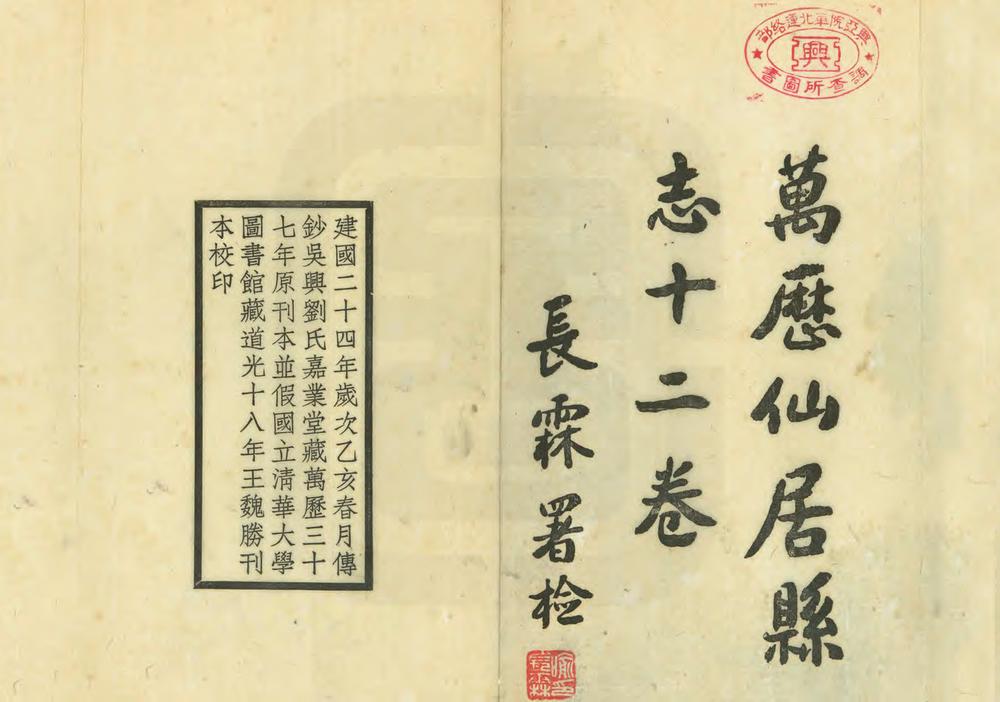 興亞院華北連絡部
興
調查所圖書
萬歷仙居縣
志十二卷
長霖署檢
建國二十四年歲次乙亥春月傳
鈔吳興劉氏嘉業堂藏萬歷三十
七年原刊本並假國立清華大學
圖書館藏道光十八年王魏勝刊
本校印